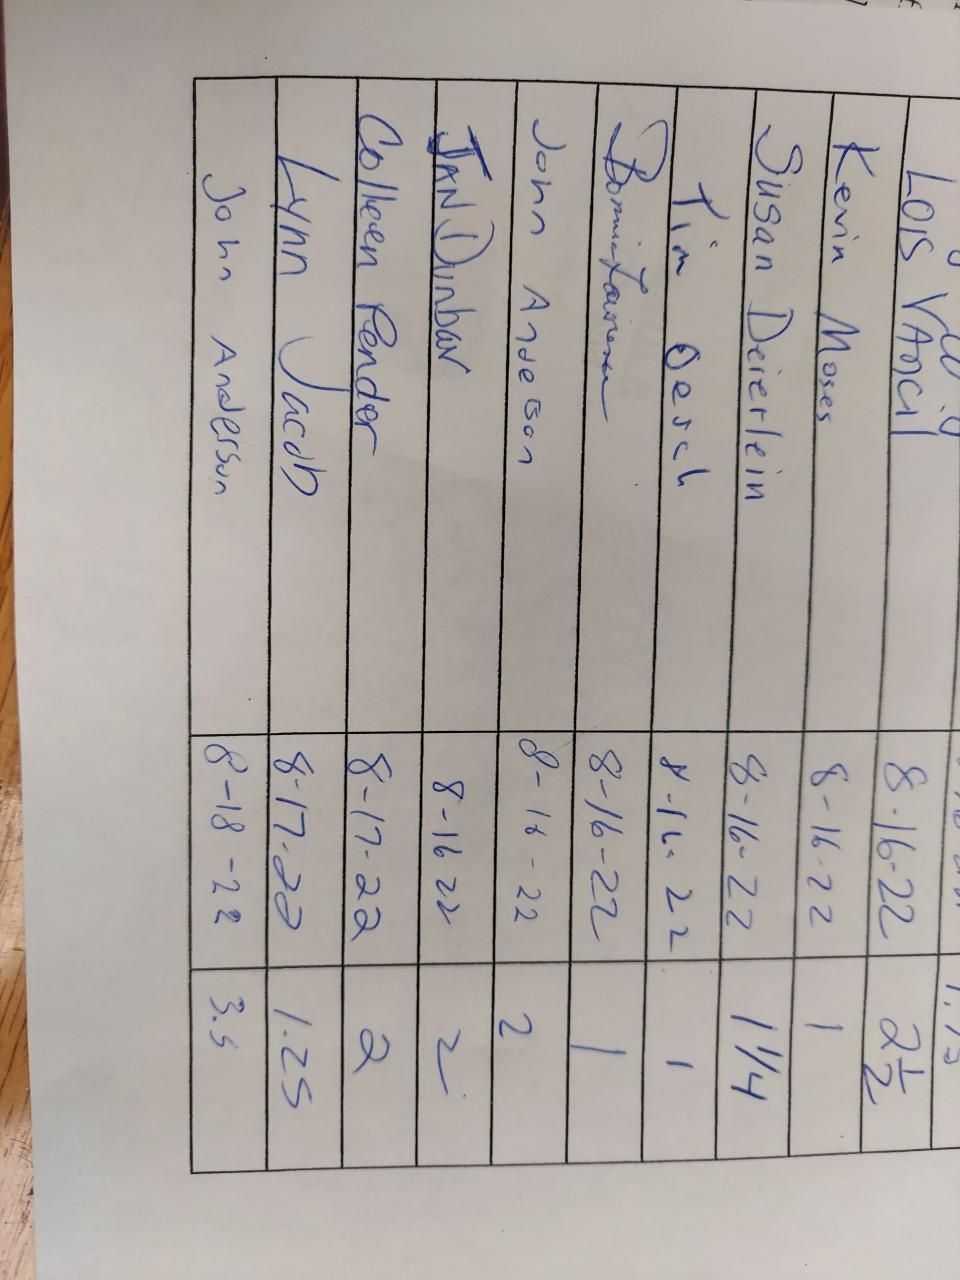 Lois Vancil 8-16-22 2 1/2
Kevin Moses 8-16-22 1
Susan Deierlein 8-16-22 1 1/4
Tim Oesch 8-16-22 1
Bonnie 8-16-22 1
John Anderson 8-16-22 2
JAN Dunbar 8-16 22 2
Colleen Pender 8-17-22 2
Lynn Jacob 8-17-22 1.25
John Anderson 8-18-22 3.5